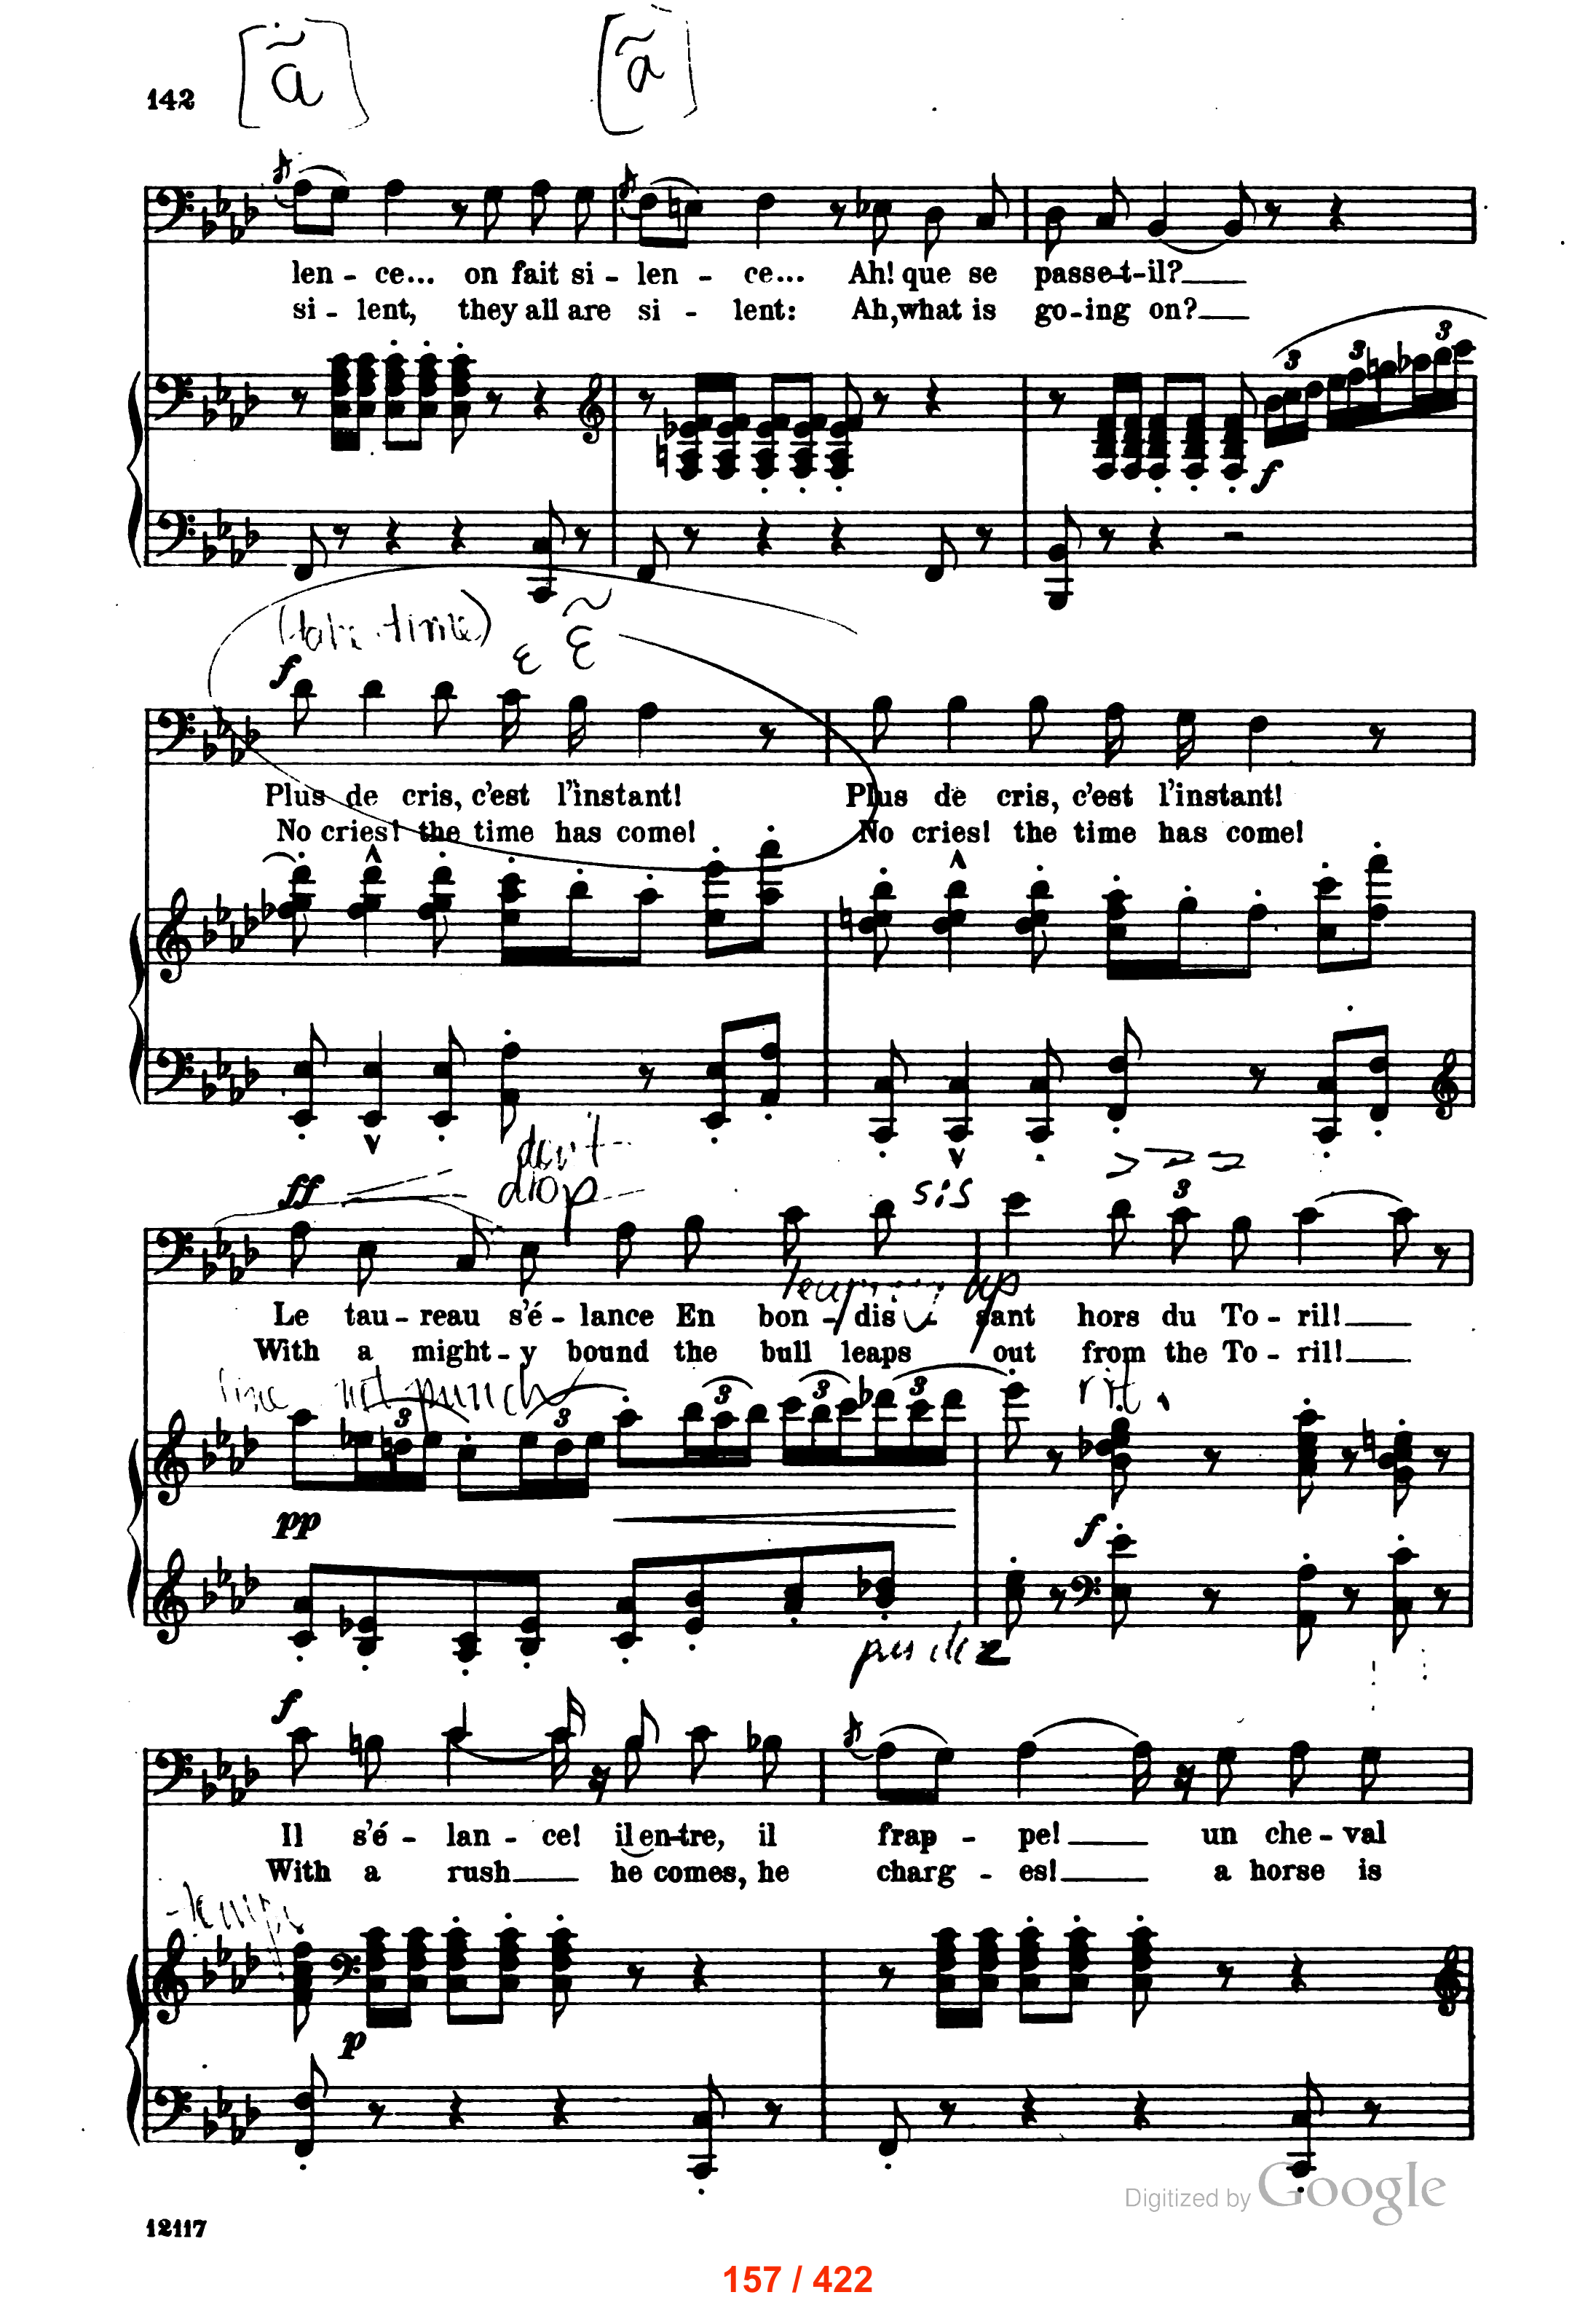 [ã] [ã]
142
len - ce... on fait si - len - ce... Ah! que se passe-t-il?
si - lent, they all are si - lent: Ah, what is go-ing on?
3 3 3
f
(take time)
ɛ ɛ̃
f
Plus de cris, c'est l'instant! Plus de cris, c'est l'instant!
No cries! the time has come! No cries! the time has come!
don't
drop
ff
sis
3
up
Le tau - reau s'é - lance En bon - dis - sant hors du To - ril!
With a might - y bound the bull leaps out from the To - ril!
line not punch rit.
3 3 3 3 3
pp f
f
Il s'é - lan - ce! il en-tre, il frap - pe! un che - val
With a rush he comes, he charg - es! a horse is
p
Digitized by Google
12117
157 / 422